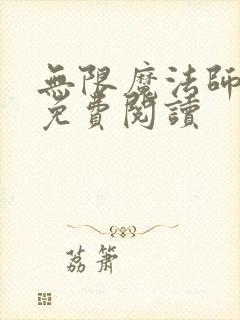 無限魔法師
免費閱讀
荔簫